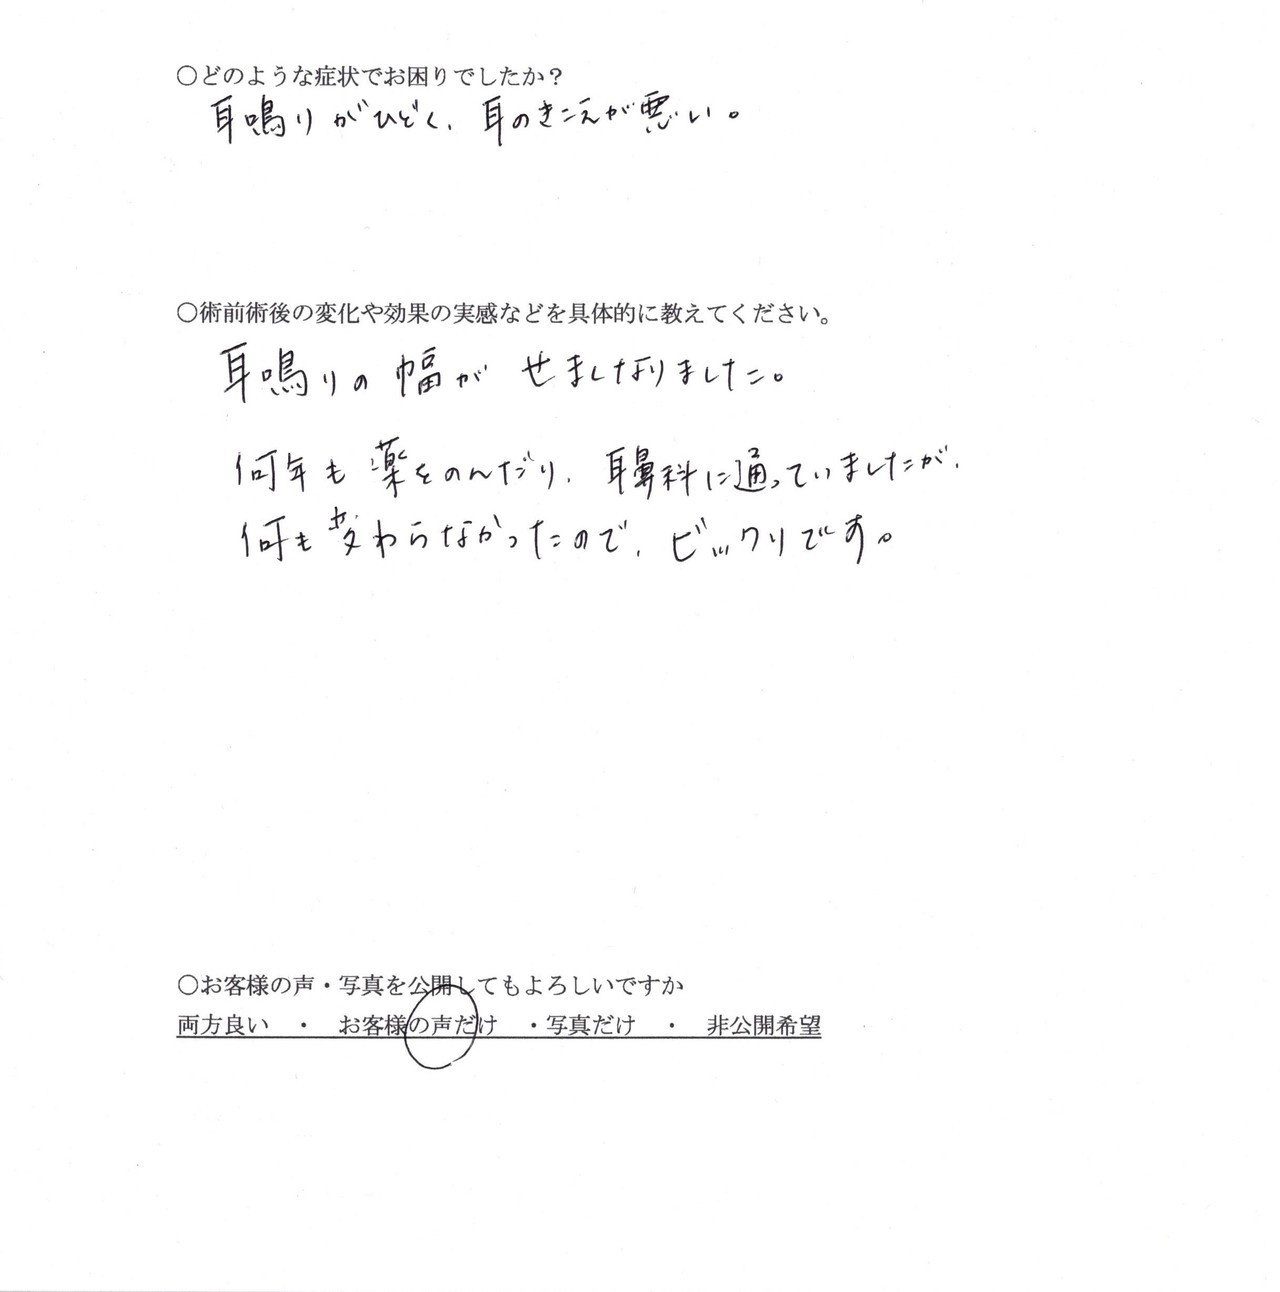 ○どのような症状でお困りでしたか？
耳鳴りがひどく、耳のきこえが悪い。
○術前術後の変化や効果の実感などを具体的に教えてください。
耳鳴りの幅がせましなりました。
何年も薬をのんだり、耳鼻科に通っていましたが、
何も変わらなかったので、ビックリです。
○お客様の声・写真を公開してもよろしいですか
両方良い　・　お客様の声だけ　・写真だけ　・　非公開希望